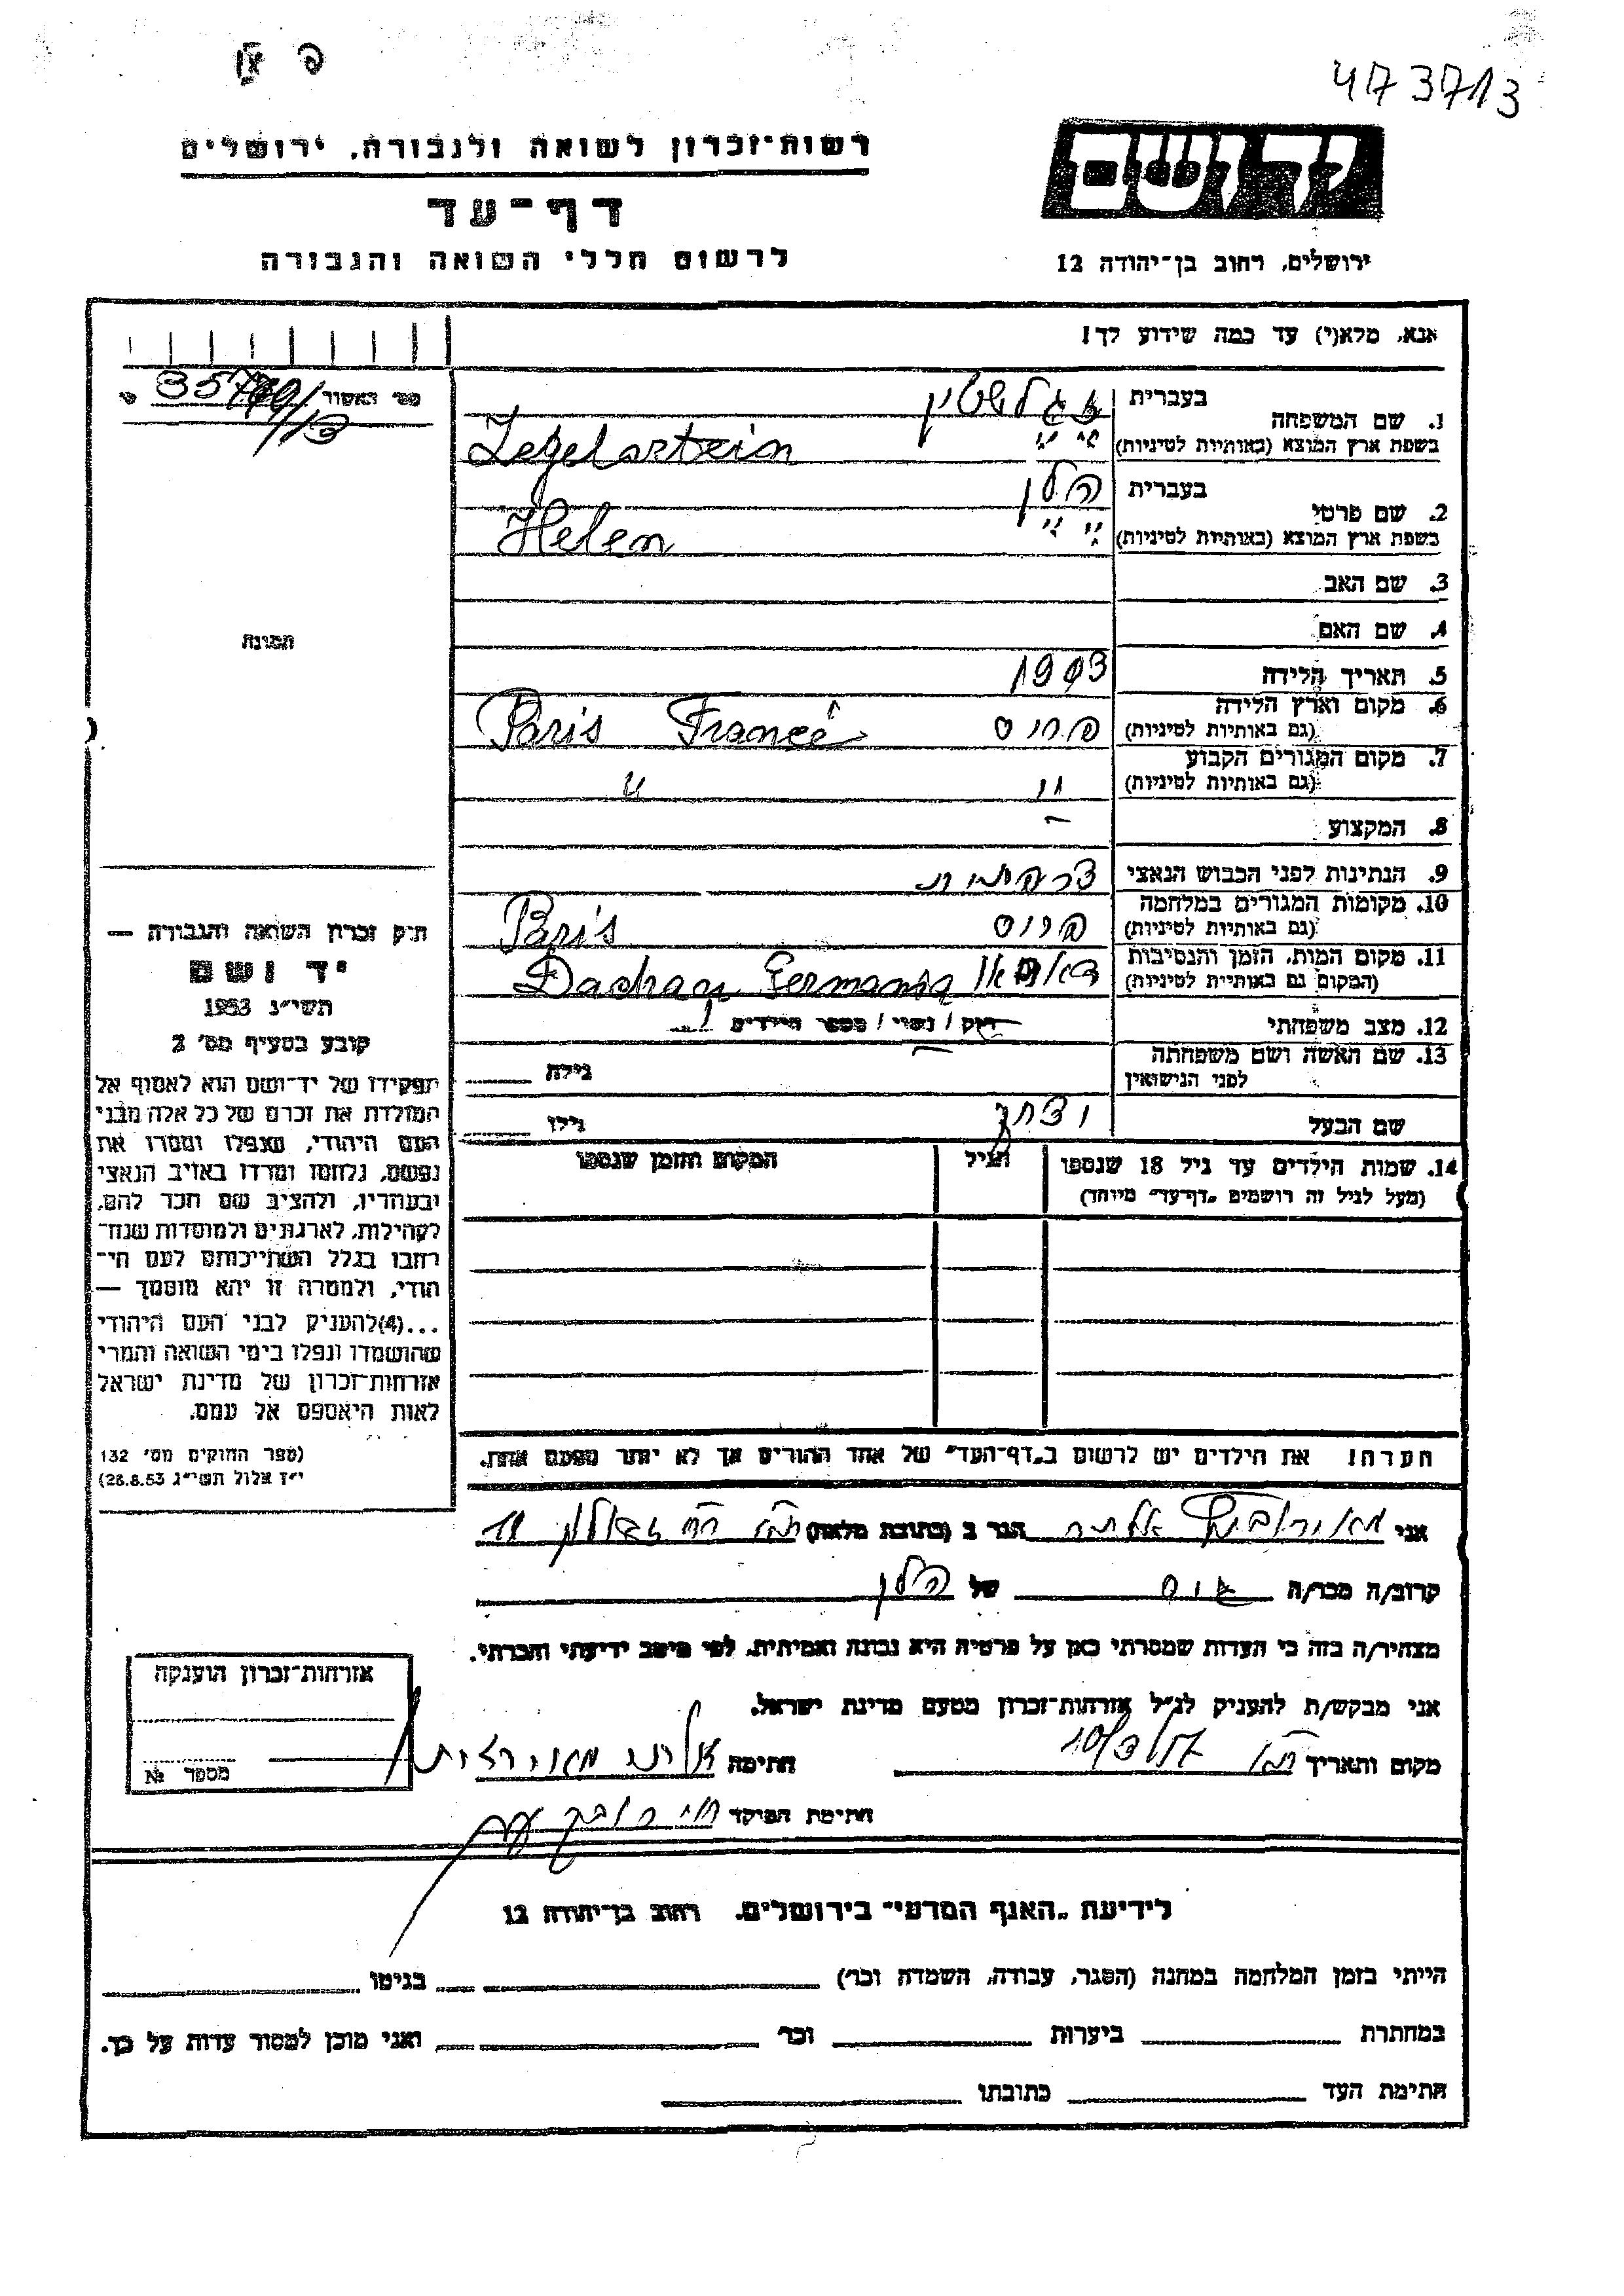 473713
רשות־זכרון לשואה ולגבורה, ירושלים
דף־עד
לרשום חללי השואה והגבורה
יד ושם
ירושלים, רחוב בן־יהודה 12
אנא, מלא(י) עד כמה שידוע לך!
1. שם המשפחה
בעברית
זגלשטין
בשפת ארץ המוצא (באותיות לטיניות)
Zegelsztein
2. שם פרטי
בעברית
הלן
בשפת ארץ המוצא (באותיות לטיניות)
Helen
3. שם האב
4. שם האם
5. תאריך הלידה
1903
6. מקום וארץ הלידה
(גם באותיות לטיניות)
פריס Paris France
7. מקום המגורים הקבוע
(גם באותיות לטיניות)
" "
8. המקצוע
9. הנתינות לפני הכבוש הנאצי
צרפתית
10. מקומות המגורים במלחמה
(גם באותיות לטיניות)
פריס Paris
11. מקום המות, הזמן והנסיבות
(המקום גם באותיות לטיניות)
דאכאו Dachau Germania
12. מצב משפחתי
רוק / נשוי / מספר הילדים
13. שם האשה ושם משפחתה
לפני הנישואין
גילה
שם הבעל
יצחק
גילו
14. שמות הילדים עד גיל 18 שנספו
(מעל לגיל זה רושמים „דף־עד" מיוחד)
הגיל
המקום והזמן שנספו
הערה! את הילדים יש לרשום ב„דף־העד" של אחד ההורים אך לא יותר מפעם אחת.
תמונה
חוק זכרון השואה והגבורה —
יד ושם
תשי״ג 1953
קובע בסעיף מס׳ 2
תפקידו של יד־ושם הוא לאסוף אל
המולדת את זכרם של כל אלה מבני
העם היהודי, שנפלו ומסרו את
נפשם, נלחמו ומרדו באויב הנאצי
ובעוזריו, ולהציב שם וזכר להם,
לקהילות, לארגונים ולמוסדות שנח־
רבו בגלל השתייכותם לעם הי־
הודי, ולמטרה זו יהא מוסמך —
...(4) להעניק לבני העם היהודי
שהושמדו ונפלו בימי השואה והמרי
אזרחות־זכרון של מדינת ישראל
לאות היאספם אל עמם.
(ספר החוקים מס׳ 132
י״ז אלול תשי״ג 28.8.53)
אני הגר ב (כתובת מלאה) 11
קרוב/ה מכר/ה גיס של הלן
מצהיר/ה בזה כי העדות שמסרתי כאן על פרטיה היא נכונה ואמיתית, לפי מיטב ידיעתי והכרתי.
אני מבקש/ת להעניק לנ״ל אזרחות־זכרון מטעם מדינת ישראל.
מקום ותאריך חתימה
חתימת הפוקד
אזרחות־זכרון הוענקה
מספר №
לידיעת „האגף המדעי" בירושלים, רחוב בן־יהודה 12
הייתי בזמן המלחמה במחנה (הסגר, עבודה, השמדה וכר׳) בגיטו
במחתרת ביערות וכר׳ ואני מוכן למסור עדות על כך.
חתימת העד כתובתו